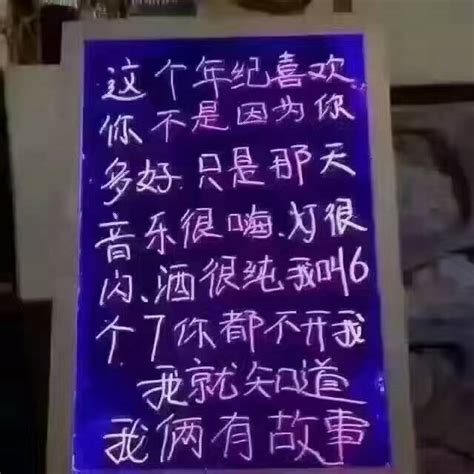 这个年纪喜欢
你不是因为你
多好.只是那天
音乐很嗨.灯很
闪、酒很纯我叫6
个7你都不开我
我就知道
我俩有故事